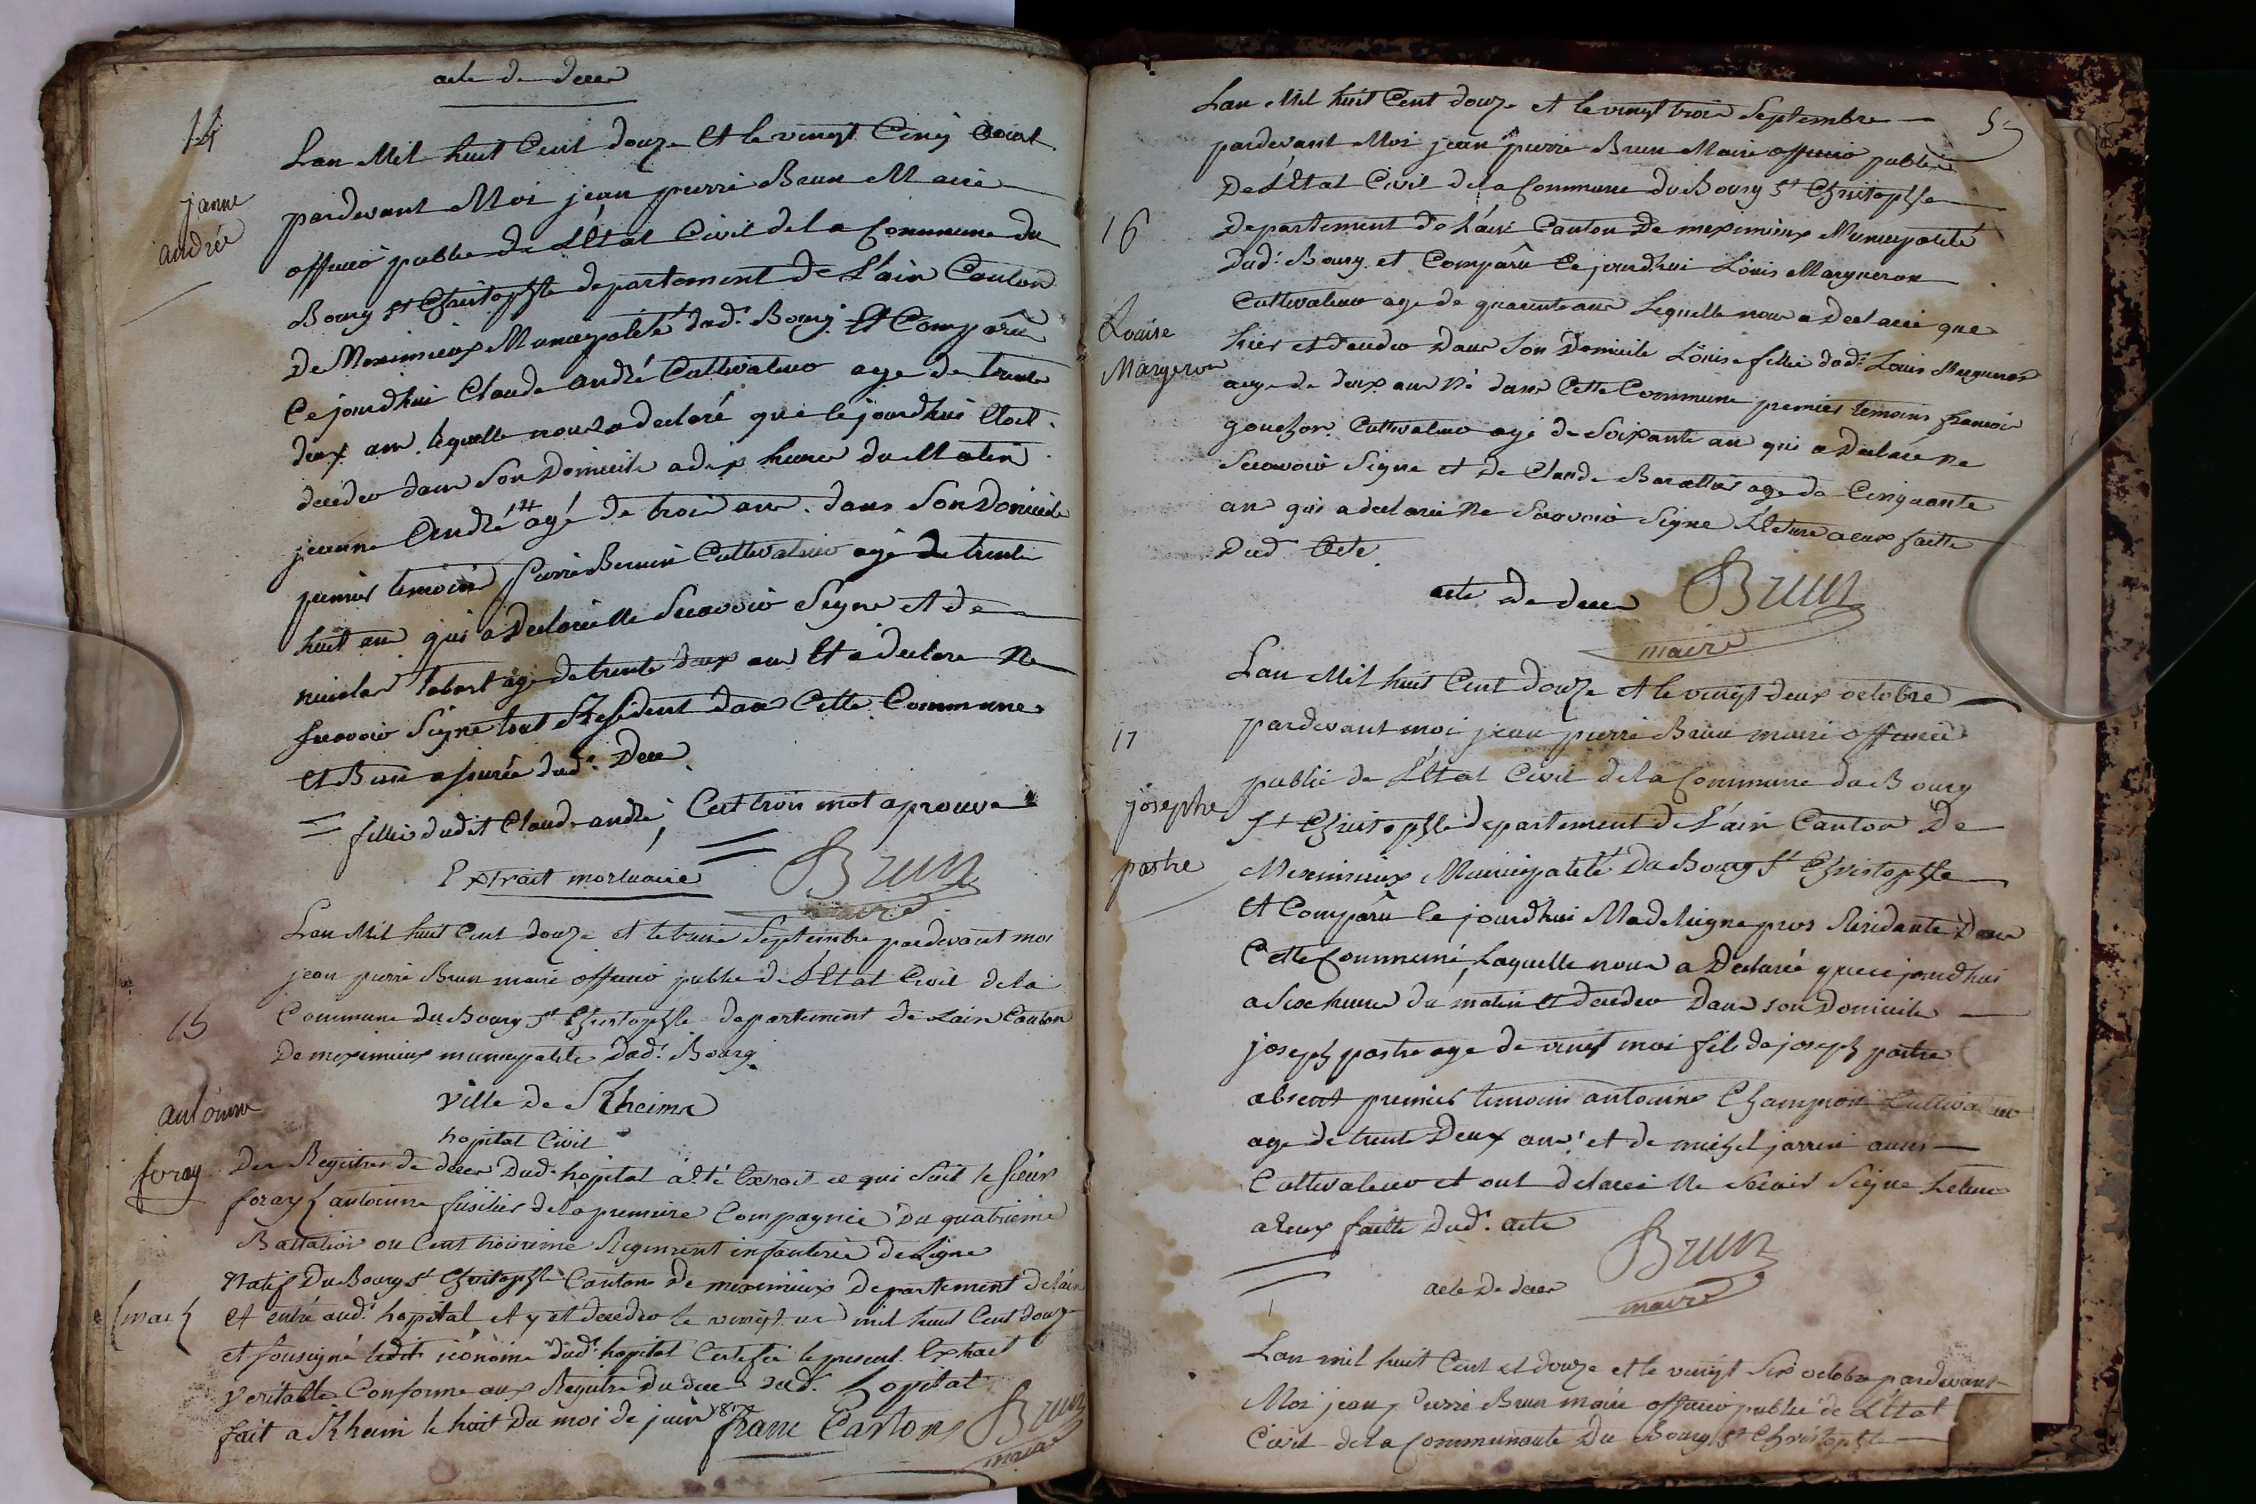 acte de deces
14
Lan Mil huit Cent douze Et le vingt Cinq aout
janne
andrée
pardevant Moi jean pierre Brun Maire
officié public de L'Etat Civil de la Commune du
Bourg St Christophle departement de L'ain Canton
De Meximieux Municipalité dud. Bourg Et Comparû
Ce jourdhui Claude andré Cultivateur age de trente
deux ans lequelle nous a declaré que le jourdhui Etoit
decedée dans Son Domicile a dix heures du Matin
jeanne André # agé de trois ans dans Son Domicile
premier temoins pierre Cultivateur agé de trente
huit ans qui a Declarée Ne Scavoir Signe et de
nicolas age de trente deux ans Et a declare Ne
Scavoir Signe tout Resident dans Cette Commune
Et Bien assurée dud. Deces
= fillie dudit Claude andré, Cest trois mot aprouve =
Extrait mortuaire
Brun
maire
Lan Mil huit Cent douze et le Septembre pardevant moi
jean pierre Brun maire officié public de L'Etat Civil de la
15
Commune du Bourg St Christophle departement de Lain Canton
De meximieux municipalite Dud. Bourg
Ville de Rheims
antoinne
foray
hopital Civil
Des Registres de deces Dud. hopital a été Extrait ce qui Suit le Sieur
foray antoinne fusilier de la premiere Compagnie Du quatrieme
Battalion ou Cent Regiment infanterie de Ligne
Natif Du Bourg St Christophle Canton De meximieux Departement de lain
(mai)
Et entré aud. hopital et y et decedée le vingt un mil huit Cent douze
et Sousigné ledit iéconome dud. hopital Certifie le present Extrait
Veritable Conforme aux Registre Du deces dud. hopital
fait a Rheim le huit Du moi de juin 1812 franc Carton Brun
maire
5
Lan Mil huit Cent douze et le vingt trois Septembre
pardevant Moi jean pierre Brun Maire officié public
De L'Etat Civil de la Commune du Bourg St Christophle
16
Departement de L'ain Canton De meximieux Municipalité
Dud. Bourg et Comparû Ce jourdhui Louis Margueron
Louise
Margeron
Cultivateur age de quarente ans Lequelle nous a Declaré que
hier et decedée Dans Son Domicile Louise fillie dud. Louis Margueron
auge de deux ans Né dans Cette Commune premier temoins francois
gouchon Cultivateur agé de Soixante ans qui a Declaré Ne
Scavoir Signe et de Claude age de Cinquante
ans qui a declarée Ne Scavoir Signe Lecture a eux faitte
Dud. Acte
acte de deces
Brun
maire
Lan Mil huit Cent Douze et le vingt deux octobre
17
pardevant moi jean pierre Brun maire officié
public de L'Etat Civil de la Commune du Bourg
josephe
pastre
St Christophle departement de L'ain Canton De
Meximieux Municipalité Du Bourg St Christophle
Et Comparû Ce jourdhui Madeleigne pros Residante Dans
Cette Commune, Laquelle nous a Declarée que ce jourdhui
a Sixe heures du matin et decedée Dans son Domicile
joseph pastre age de vingt moi fils de joseph pastre
absent premier temoins antoinne Champion Cultivateur
age de trente Deux ans et de michel jarrin aussi
Cultivateur et ont declaree Ne Scavoir Signe Lecture
a Eux faitte Dud. acte
acte De deces
Brun
maire
Lan mil huit Cent et douze et le vingt Six octobre pardevant
Moi jean pierre Brun maire officié public de L'Etat
Civil de la Communauté Du Bourg St Christophle